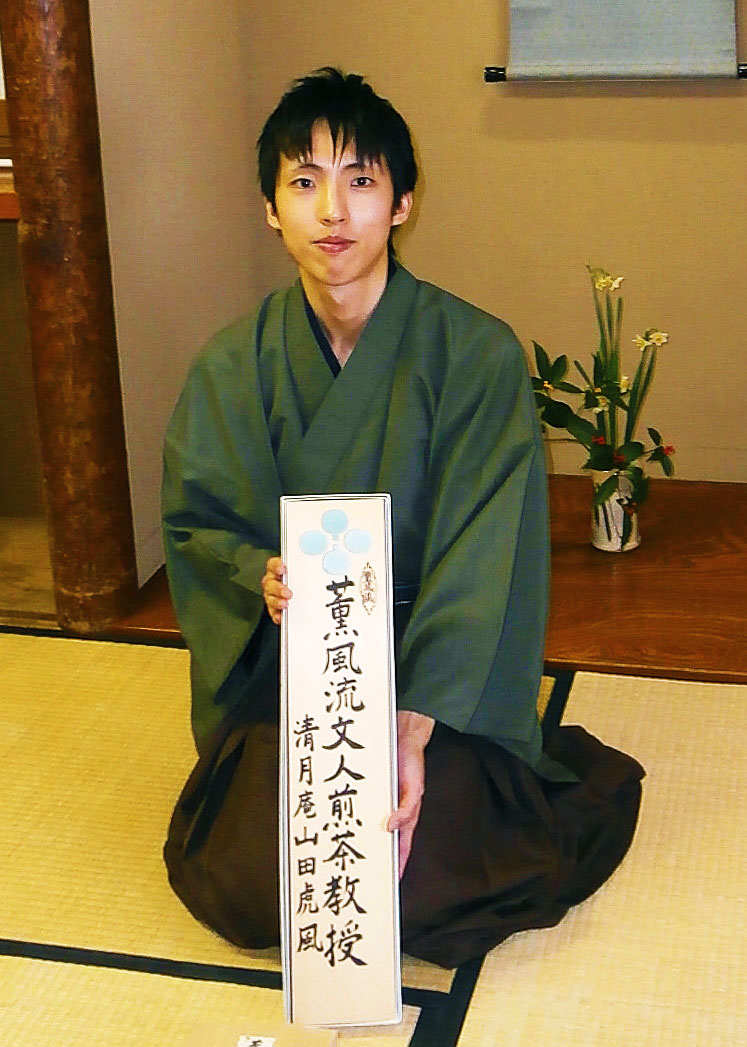 薫風流文人煎茶教授
清月庵山田虎風